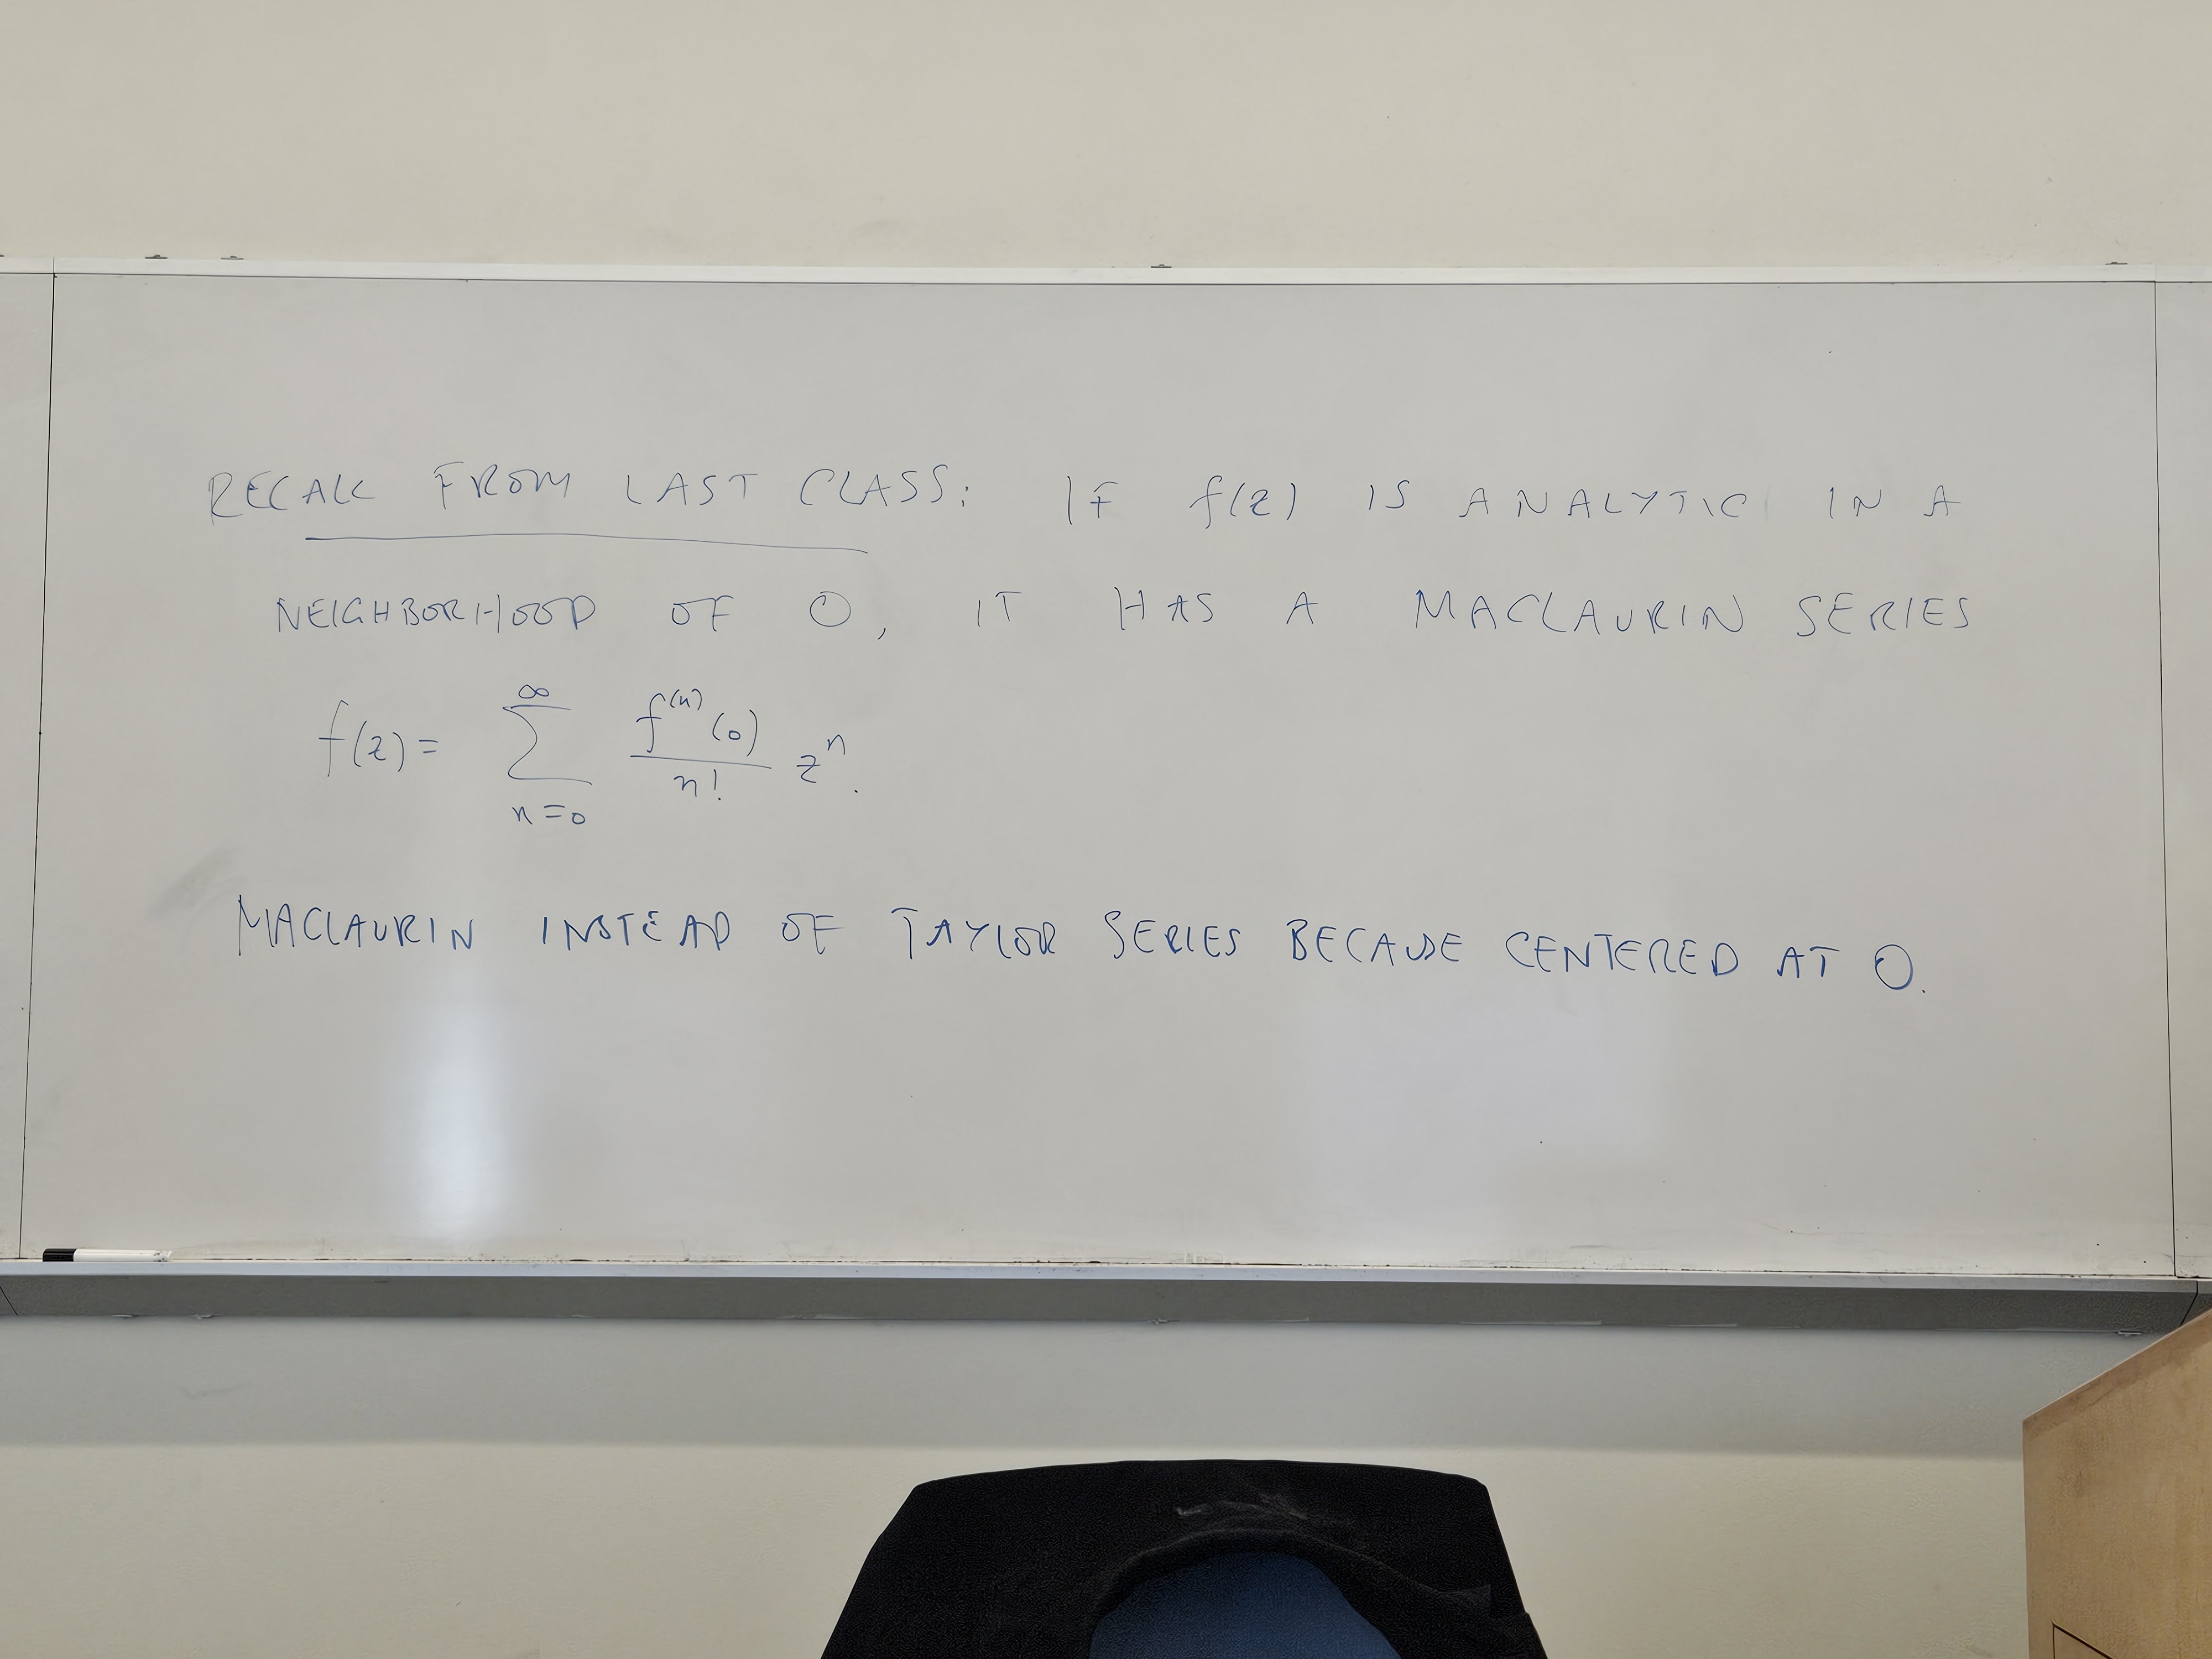 RECALL FROM LAST CLASS: IF f(z) IS ANALYTIC IN A
NEIGHBORHOOD OF 0, IT HAS A MACLAURIN SERIES
f(z) = ∑_{n=0}^{∞} \frac{f^{(n)}(0)}{n!} z^n.
MACLAURIN INSTEAD OF TAYLOR SERIES BECAUSE CENTERED AT 0.